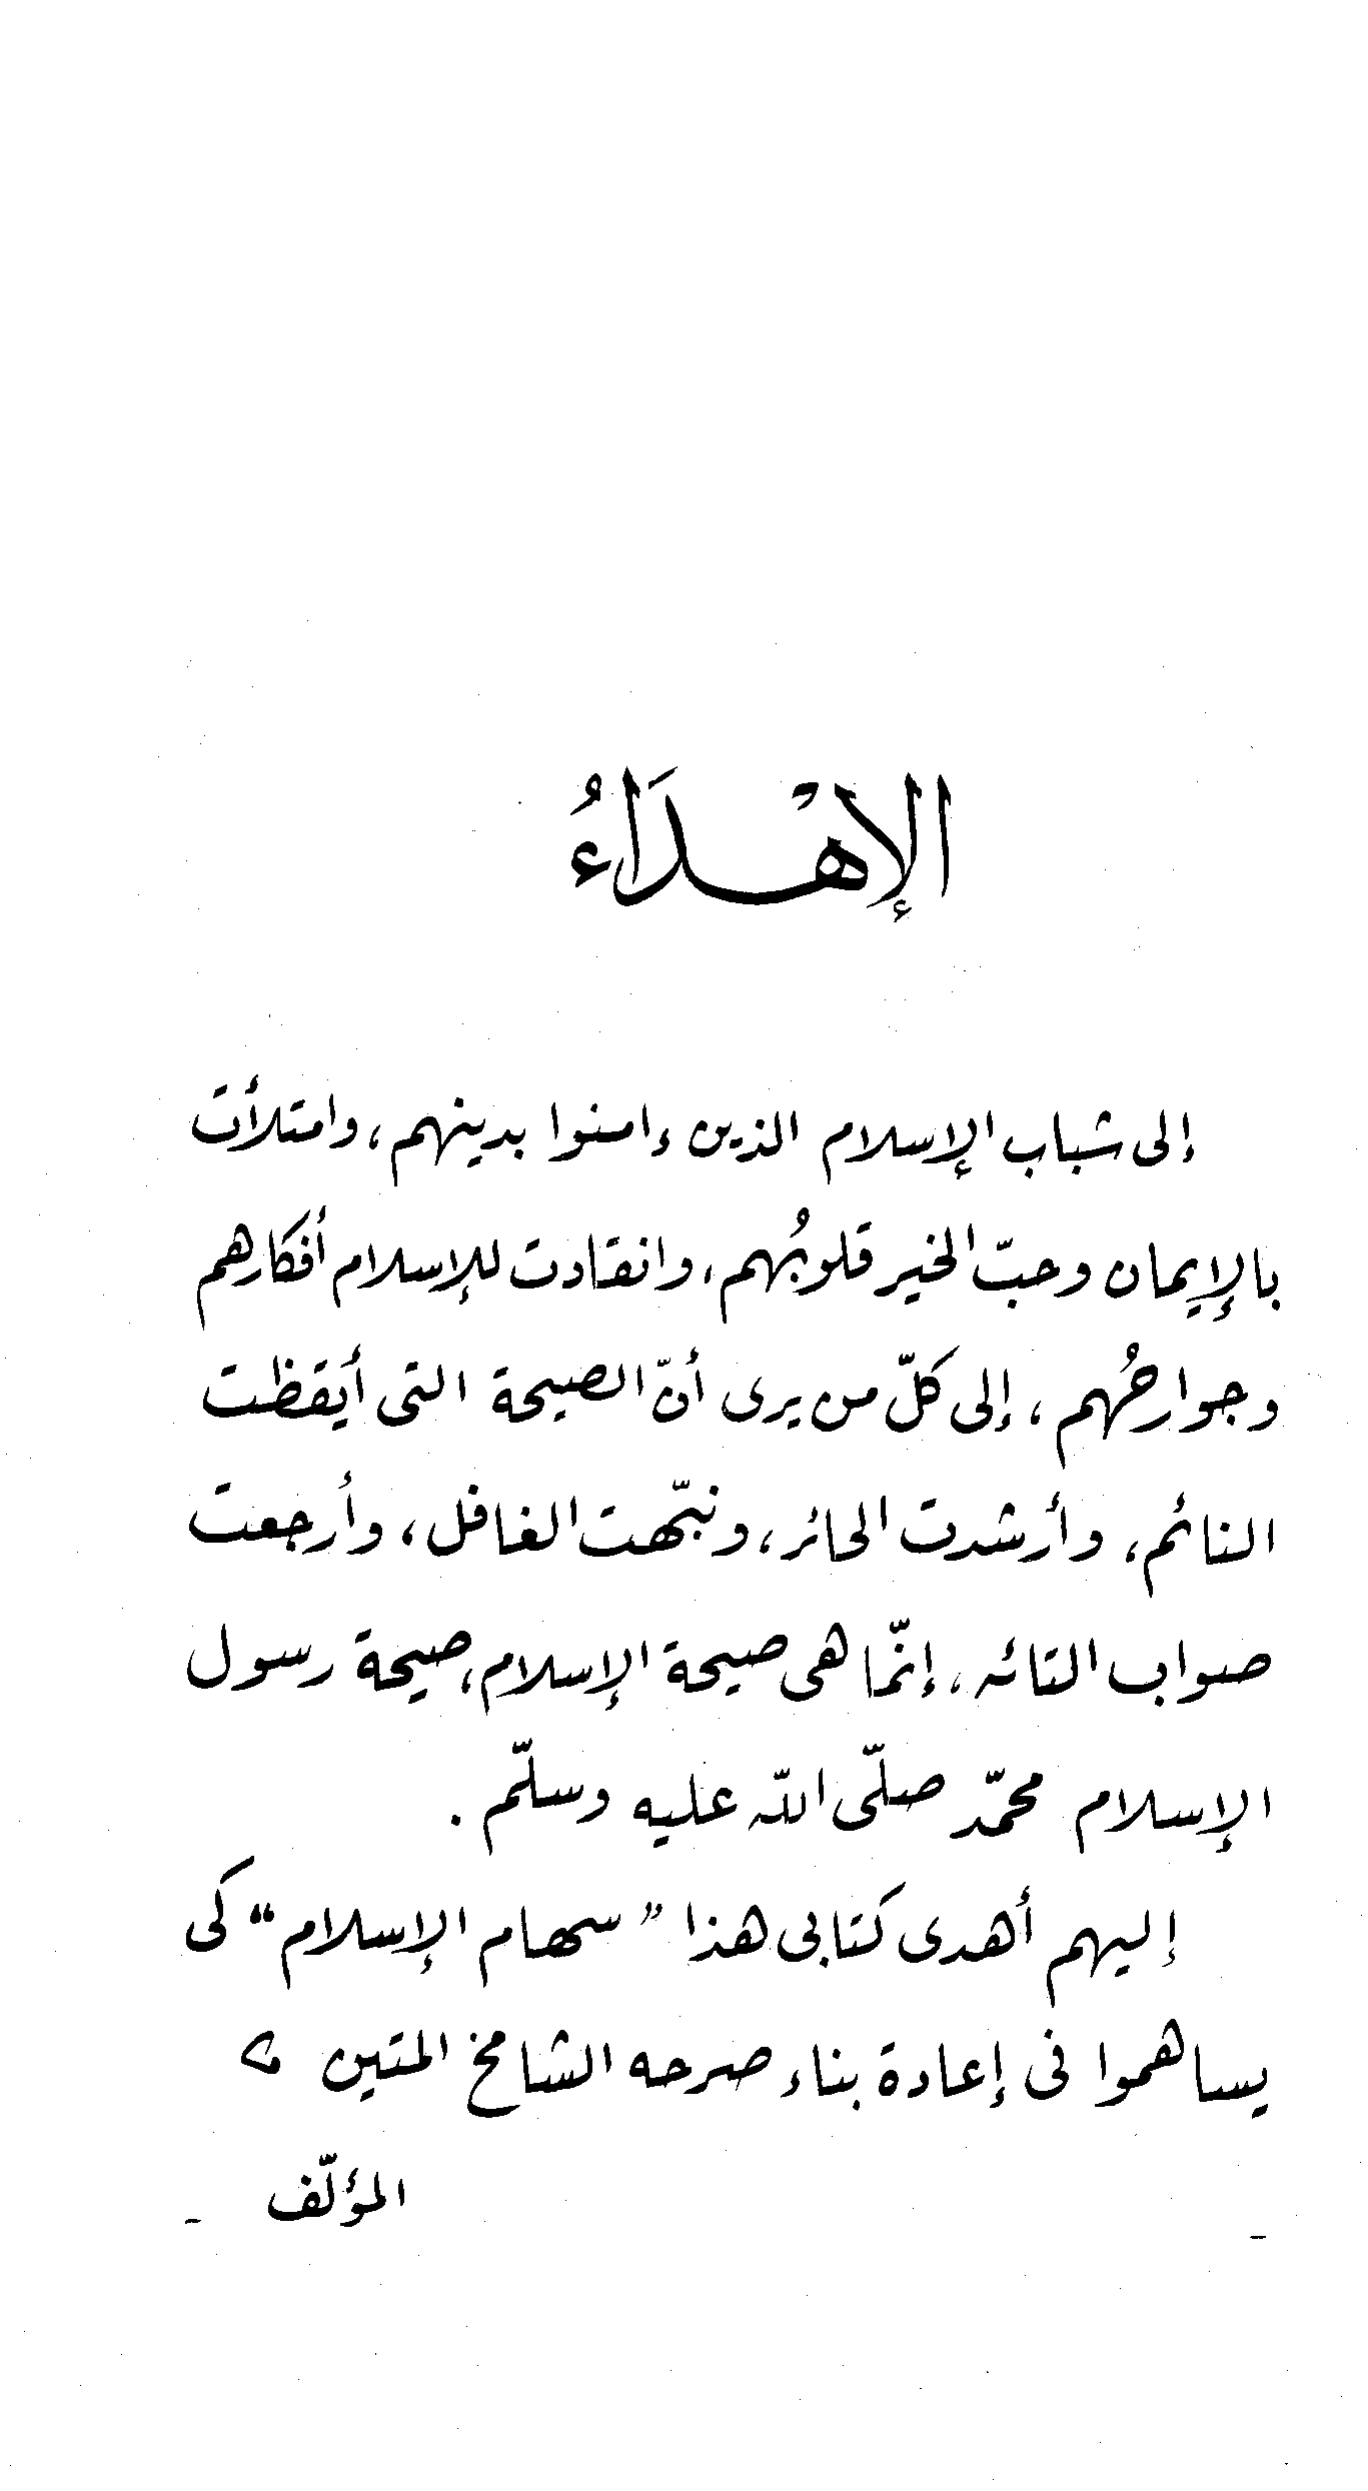 الإهْدَاءُ
إلى شباب الإسلام الذين ءامنوا بدينهم، وامتلأت
بالإيمان وحبّ الخير قلوبُهم، وانقادت للإسلام أفكارهم
وجوارحُهم، إلى كلّ من يرى أنّ الصيحة التى أيقظت
النائم، وأرشدت الحائر، ونبّهت الغافل، وأرجعت
صواب التائه، إنّما هى صيحة الإسلام، صيحة رسول
الإسلام محمّد صلّى اللّه عليه وسلّم .
إليهم أهدى كتابى هذا ” سهام الإسلام “ كى
يساهموا فى إعادة بناء صرحه الشامخ المتين
المؤلّف